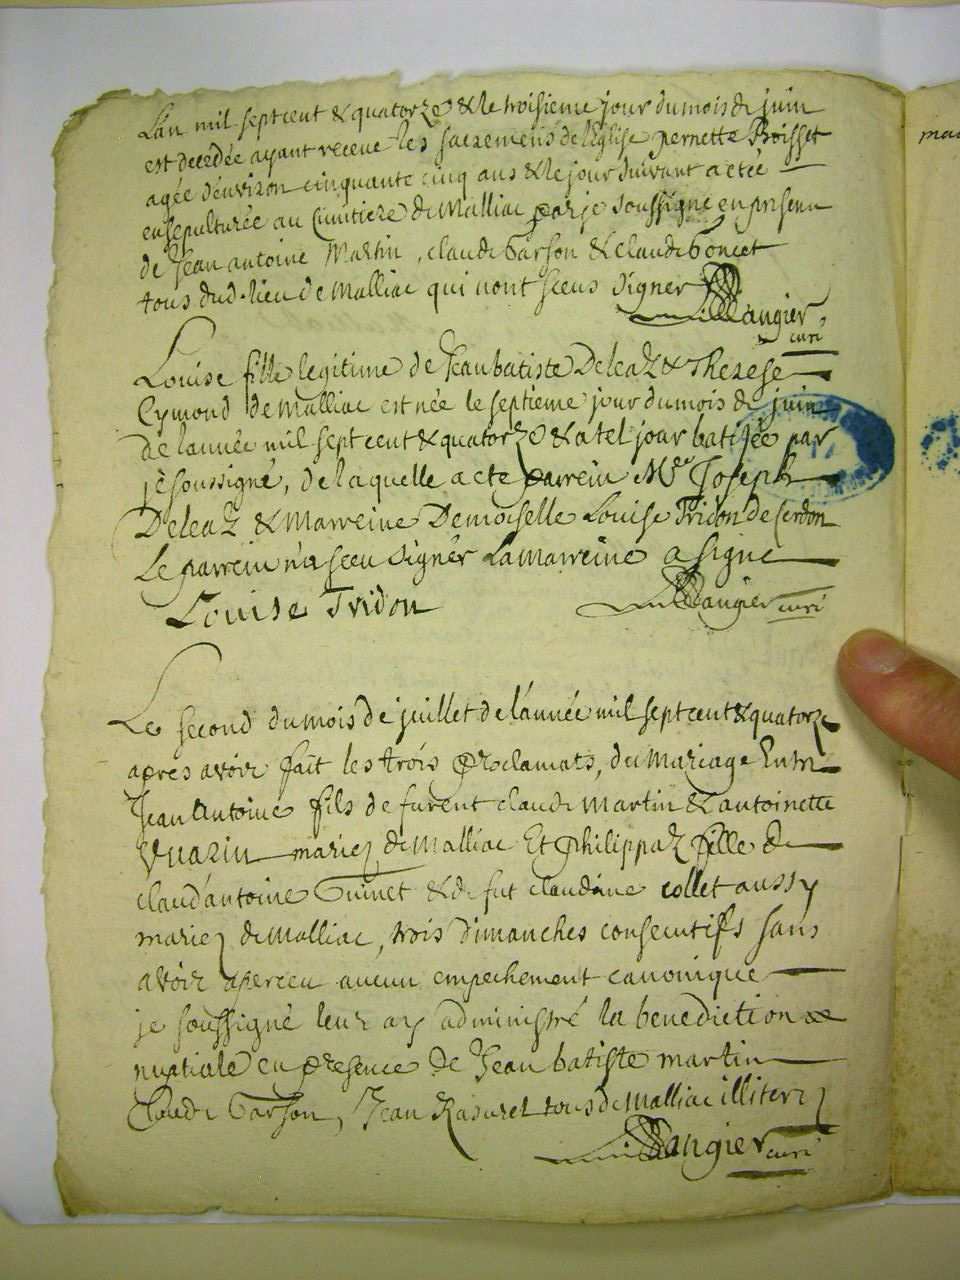 Lan mil sept cent & quatorze & le troisieme jour du mois de juin
est decedée ayant receue les sacremens de l'Eglise pernette Boisset
agée d'environ cinquante cinq ans & le jour suivant a eté
ensepulturée au cimitiere de Malliac par je soussigné en presence
de Jean antoine Martin, claude Carson & claude
tous dud. lieu de Malliac qui nont sceus signer
Dangier
curé
Louise fille legitime de Jean batiste Deleaz & Therese
Eymond de Malliac est née le septieme jour du mois de juin
de lannée mil sept cent & quatorze & a tel jour batisée par
je soussigné, de laquelle a eté parrein Mr Joseph
Deleaz & Marreine Demoiselle Louise Tridon de Cerdon
Le parrein n'a sceu signer La Marreine a signe
Louise Tridon Dangier curé
Le second du mois de juillet de l'année mil sept cent & quatorze
apres avoir fait les trois proclamats, du Mariage Entre
Jean Antoine fils de furent claude Martin & antoinette
Vuarin mariez de Malliac Et Philippaz fille de
claud'antoine Guinet & de fut claudine collet aussy
mariez de Malliac, trois dimanches consecutifs sans
avoir aperceu aucun empechement canonique
je soussigné leur ay administré la benediction
nuptiale en presence de Jean batiste martin
Claude Carson, Jean Rasurel tous de Malliac illiterez
Dangier curé